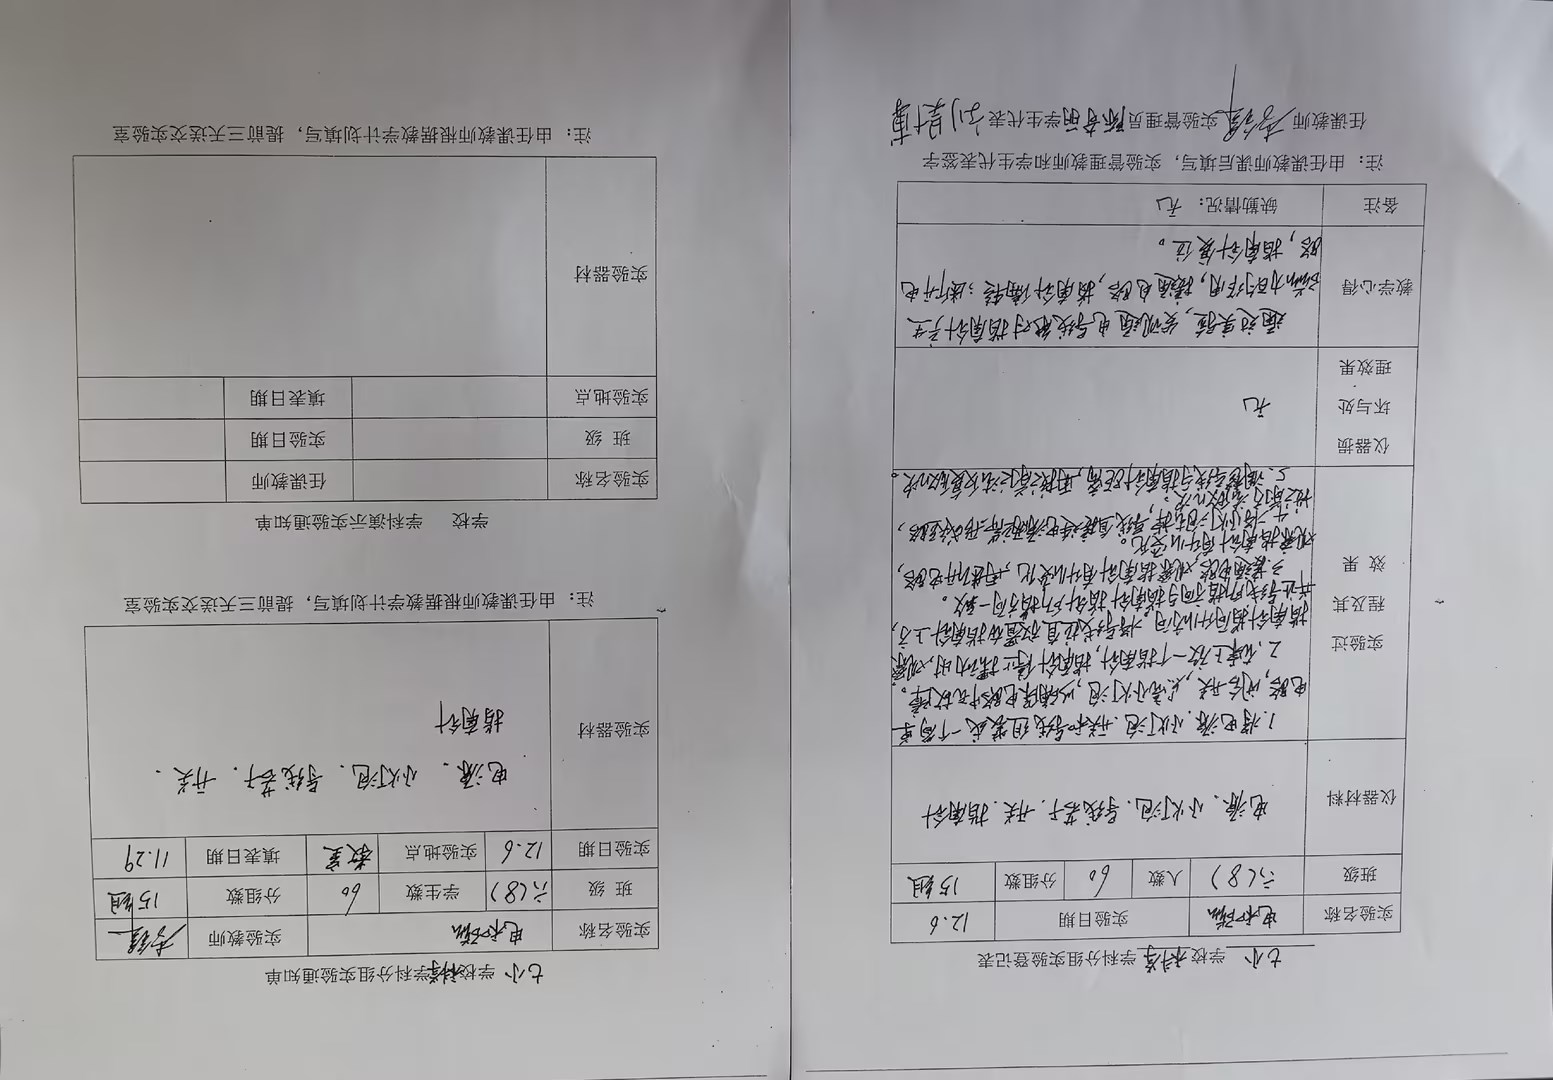 七小 学校 科学 学科分组实验登记表
实验名称 电和磁 实验日期 12.6
班级 六(8) 人数 60 分组数 15组
仪器材料 电源.小灯泡.导线若干.开关.指南针
实验过程及其效果
1.将电源.小灯泡.开关和导线组装成一个简单
电路,闭合开关,点亮小灯泡,以确保电路中无故障。
2.在桌上放一个指南针,指南针停止摆动时,观察
指南针指向什么方向,将导线拉直放置在指南针上方,
并让导线所指方向与指南针指针所指方向一致。
3.接通电路,观察指南针有什么变化,再断开电路,
观察指南针有什么变化。
4.将小灯泡去掉,导线直接连电源两端形成短路,
5.调整导线与指南针距离,再按之前方法反复做几次。
仪器损坏与处理效果 无
教学心得 通过实验,发现通电导线对指南针产生
磁力的作用,接通电路,指南针偏转;断开电
路,指南针复位。
备注 缺勤情况: 无
注:由任课教师课后填写,实验管理教师和学生代表签字
任课教师 实验管理员 学生代表
七小 学校科学学科分组实验通知单
实验名称 电和磁 实验教师
班 级 六(8) 学生数 60 分组数 15组
实验日期 12.6 实验地点 教室 填表日期 11.29
实验器材 电源.小灯泡.导线若干.开关.
指南针
注:由任课教师根据教学计划填写,提前三天送交实验室
学校 学科演示实验通知单
实验名称 任课教师
班 级 实验日期
实验地点 填表日期
实验器材
注:由任课教师根据教学计划填写,提前三天送交实验室